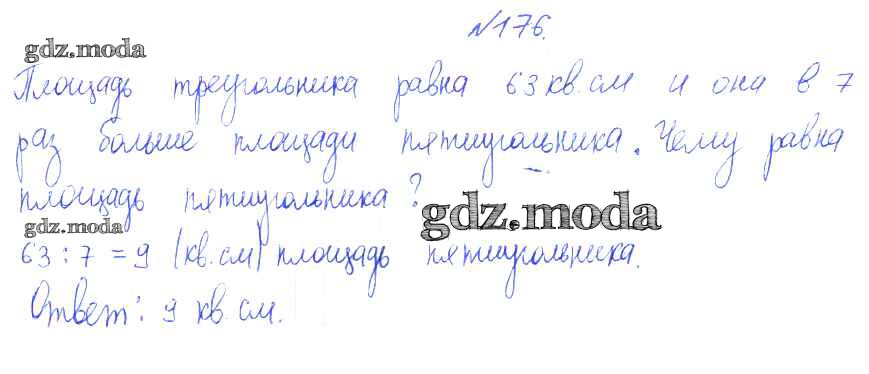 №176.
gdz.moda
Площадь треугольника равна 63 кв.см и она в 7
раз больше площади пятиугольника. Чему равна
площадь пятиугольника?
gdz.moda
gdz.moda
63 : 7 = 9 (кв.см) площадь пятиугольника.
Ответ: 9 кв.см.